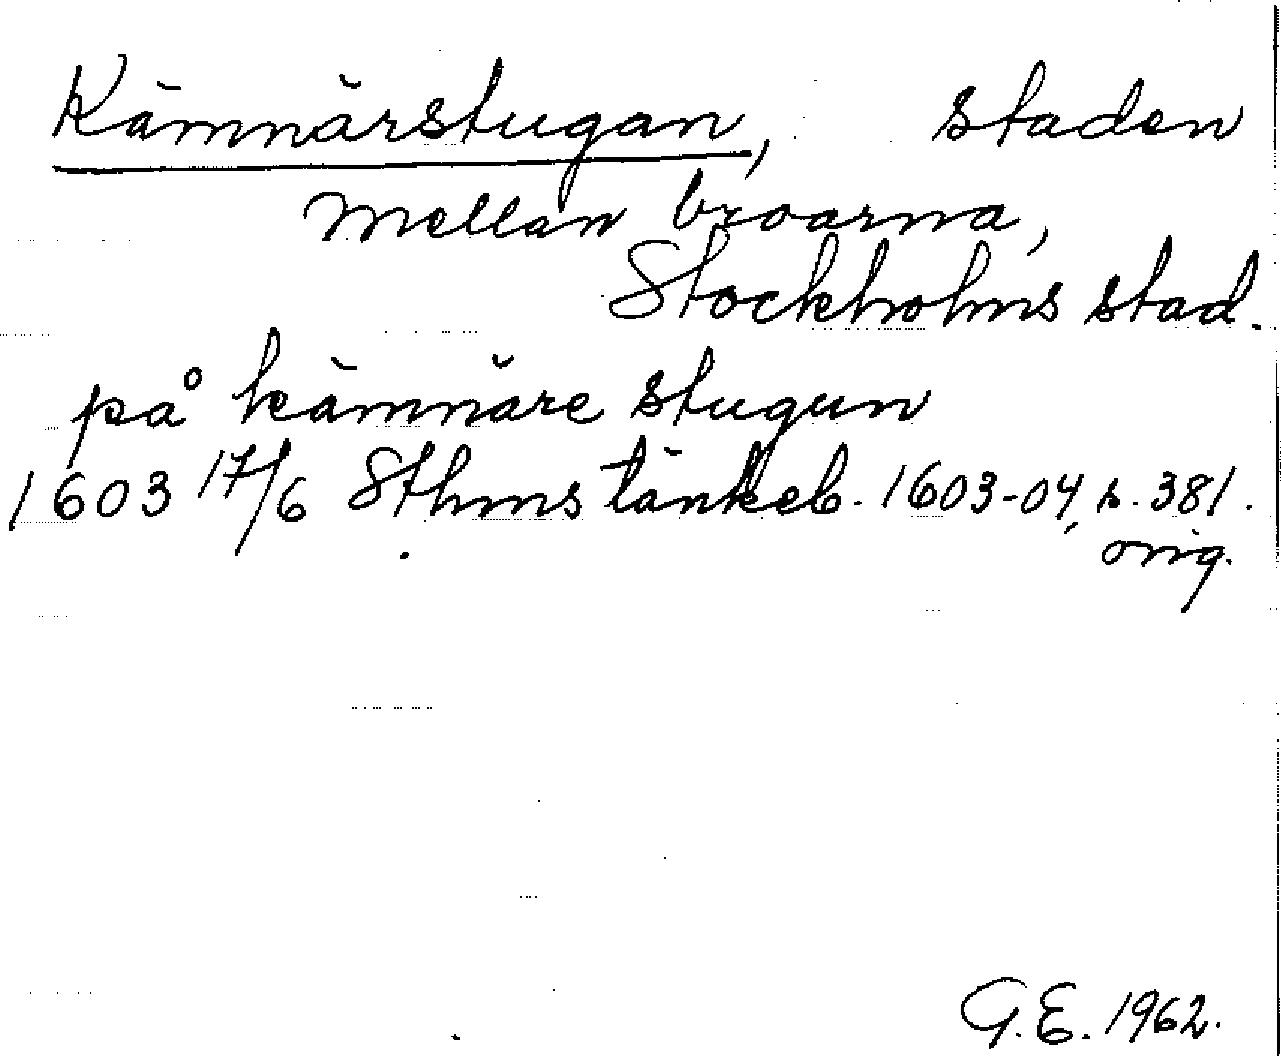 Kämnärstugan, staden
mellan broarna,
Stockholms stad.
på kämnäre stugun
1603 17/6 Sthms tänkeb. 1603-04, s. 381.
orig.
G.E. 1962.